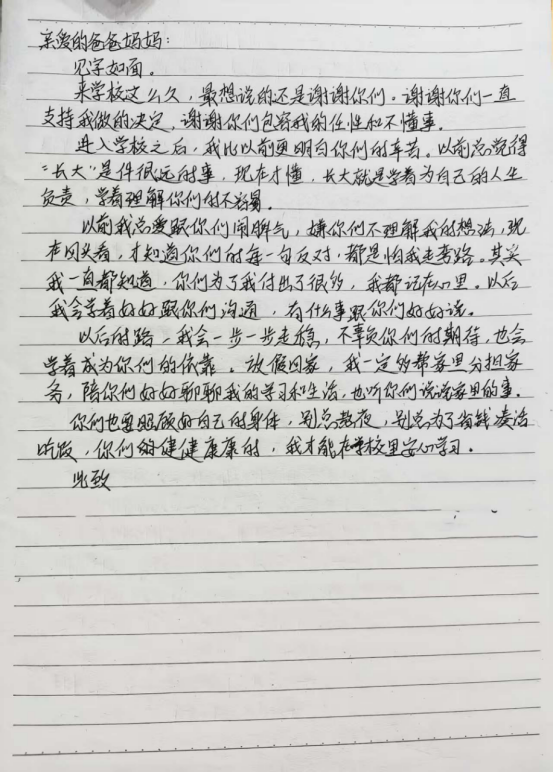 亲爱的爸爸妈妈:
见字如面。
来学校这么久,最想说的还是谢谢你们。谢谢你们一直
支持我做的决定,谢谢你们包容我的任性和不懂事。
进入学校之后,我比以前更明白你们的辛苦。以前总觉得
“长大”是件很远的事,现在才懂,长大就是学着为自己的人生
负责,学着理解你们的不容易。
以前我总爱跟你们闹脾气,嫌你们不理解我的想法,现
在回头看,才知道你们的每一句反对,都是怕我走弯路。其实
我一直都知道,你们为了我付出了很多,我都记在心里。以后
我会学着好好跟你们沟通,有什么事跟你们好好说。
以后的路,我会一步一步走稳,不辜负你们的期待,也会
学着成为你们的依靠。放假回家,我一定多帮家里分担家
务,陪你们好好聊聊我的学习和生活,也听你们说说家里的事。
你们也要照顾好自己的身体,别总熬夜,别总为了省钱凑活
吃饭,你们健健康康的,我才能在学校里安心学习。
此致